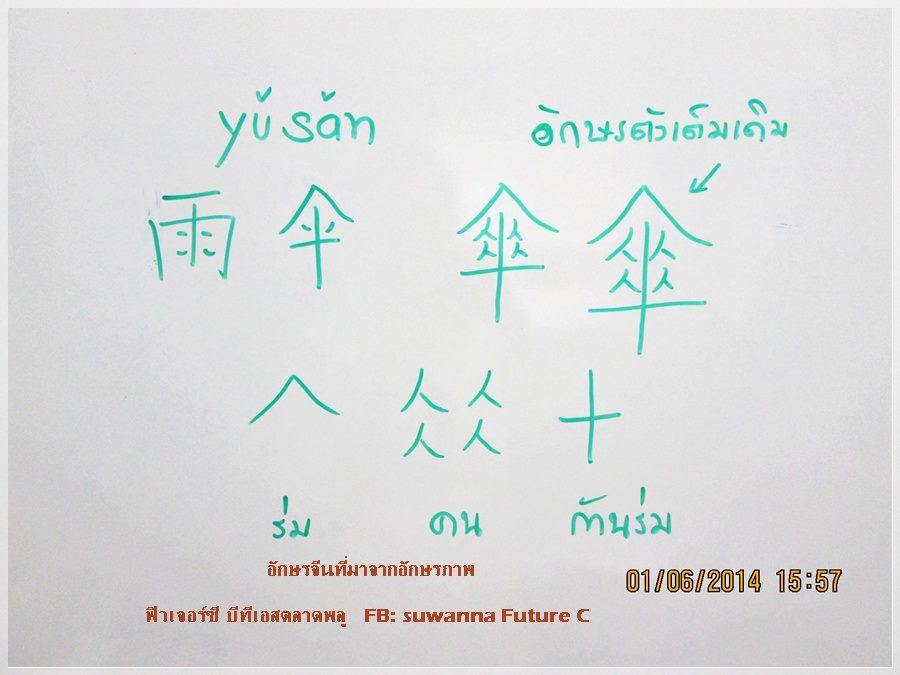 yǔ sǎn
อักษรตัวเต็มเดิม
雨 伞 傘 傘
𠆢 人人人人 十
ร่ม คน ก้านร่ม
อักษรจีนที่มาจากอักษรภาพ
01/06/2014 15:57
ฟิวเจอร์ซี บีทีเอสตลาดพลู FB: suwanna Future C